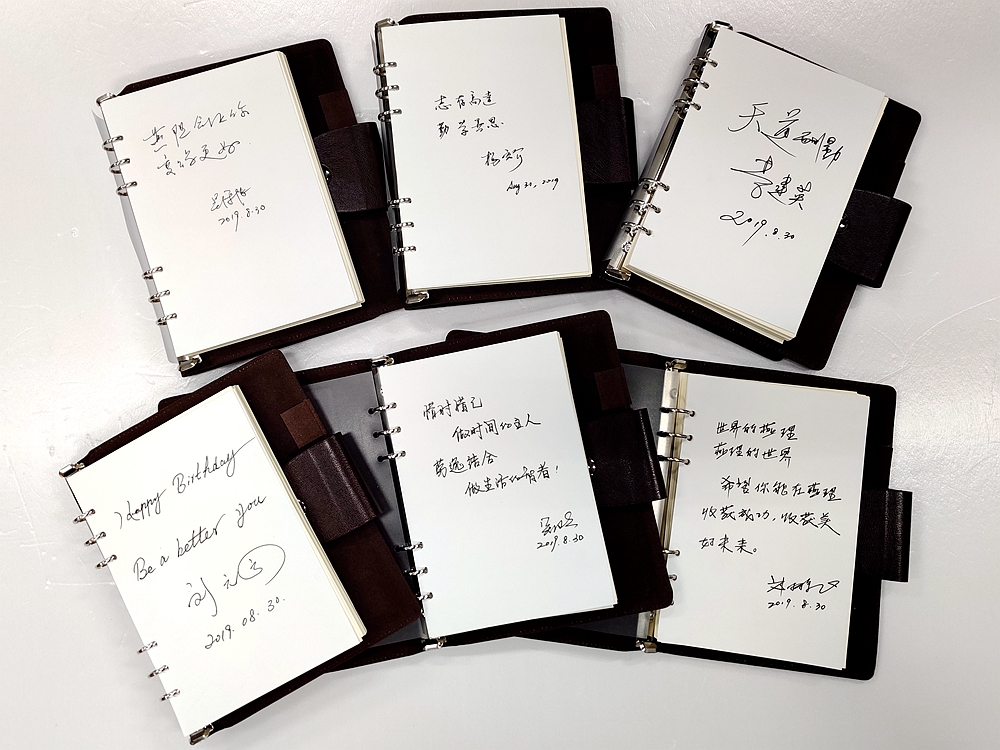 燕隄会让你
变得更好
2019.8.30
志存高远
勤学善思
Aug 30, 2019
天道酬勤
李建英
2019.8.30
Happy Birthday
Be a better you
2019.08.30.
惜时惜己
做时间的主人
劳逸结合
做生活的智者!
2019.8.30
世界的燕理
燕理的世界
希望你能在燕理
收获成功,收获美
好未来。
2019.8.30